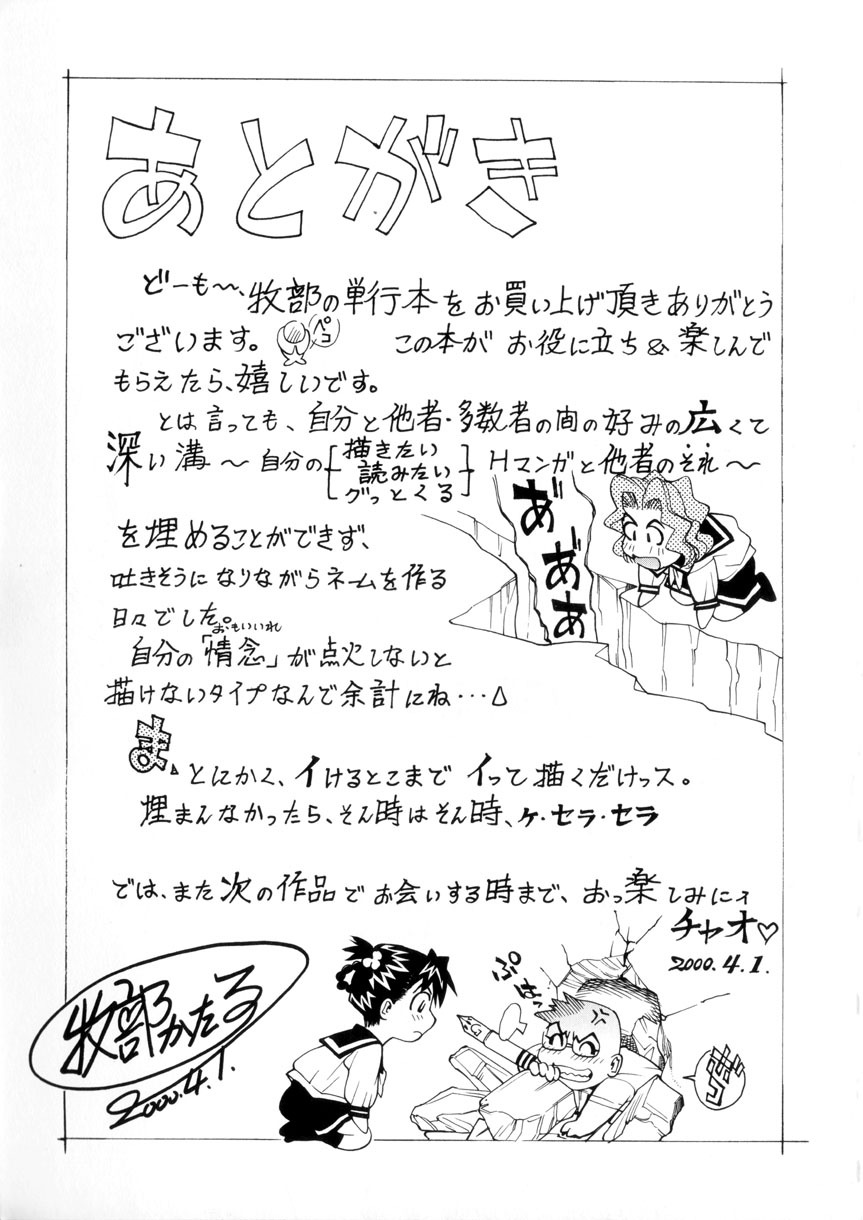 あとがき
どーも〜、牧部の単行本をお買い上げ頂きありがとう
ございます。 ペコ この本が お役に立ち & 楽しんで
もらえたら、嬉しいです。
とは言っても、自分と他者・多数者の間の好みの広くて
深い溝〜自分の[描きたい
読みたい
グッとくる]Hマンガと他者のそれ〜
を埋めることができず、
吐きそうになりながらネームを作る
日々でした。
おもいいれ
自分の「情念」が点火しないと
描けないタイプなんで余計にね…
あ゛あ゛あ゛
ま、とにかく、イけるとこまで イって描くだけっス。
埋まんなかったら、そん時はそん時、ケ・セラ・セラ
では、また次の作品で お会いする時まで、おっ楽しみにィ
チャオ♡
2000.4.1.
牧部かたる
2000.4.1.